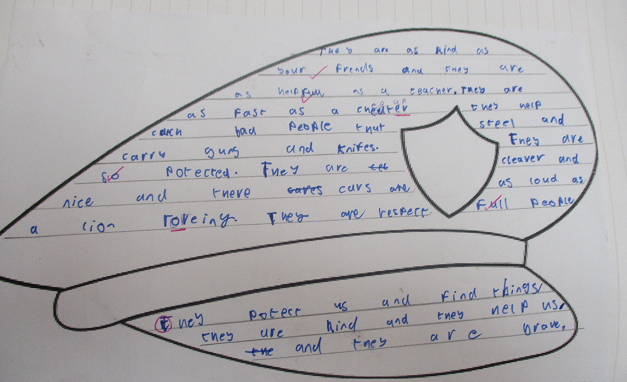 They are as kind as
your frends and they are
as helpfull as a teacher. They are
as fast as a cheeter they help
catch bad people that steel and
carry guns and knifes. They are
so potected. They are cleaver and
nice and there cars are as loud as
a lion roreing. They are respect full people
They potect us and find things
they are kind and they help us.
and they are brave.